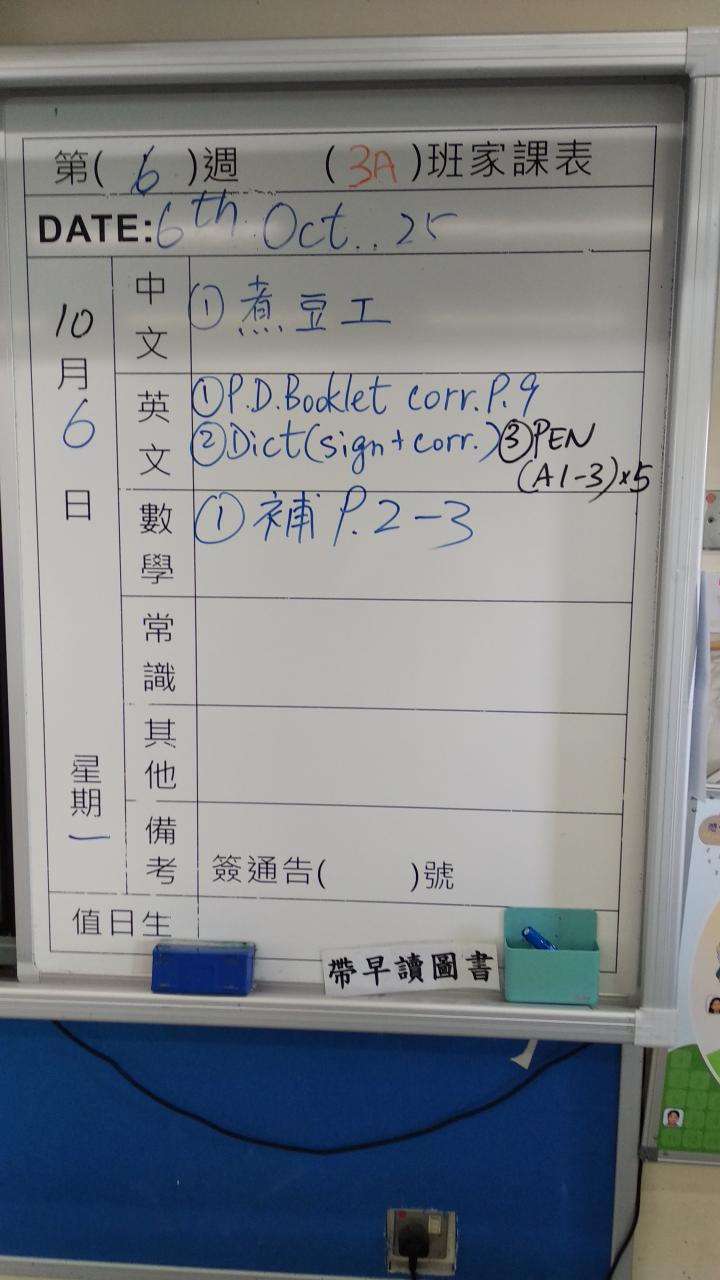 第( 6 )週 ( 3A )班家課表
DATE: 6th Oct.. 25
10月6日 星期一
中文 ① 煮豆工
英文 ① P.D.Booklet corr. P.9
② Dict(sign+corr.) ③ PEN
(A1-3)×5
數學 ① 補 P.2-3
常識
其他
備考 簽通告( )號
值日生
帶早讀圖書